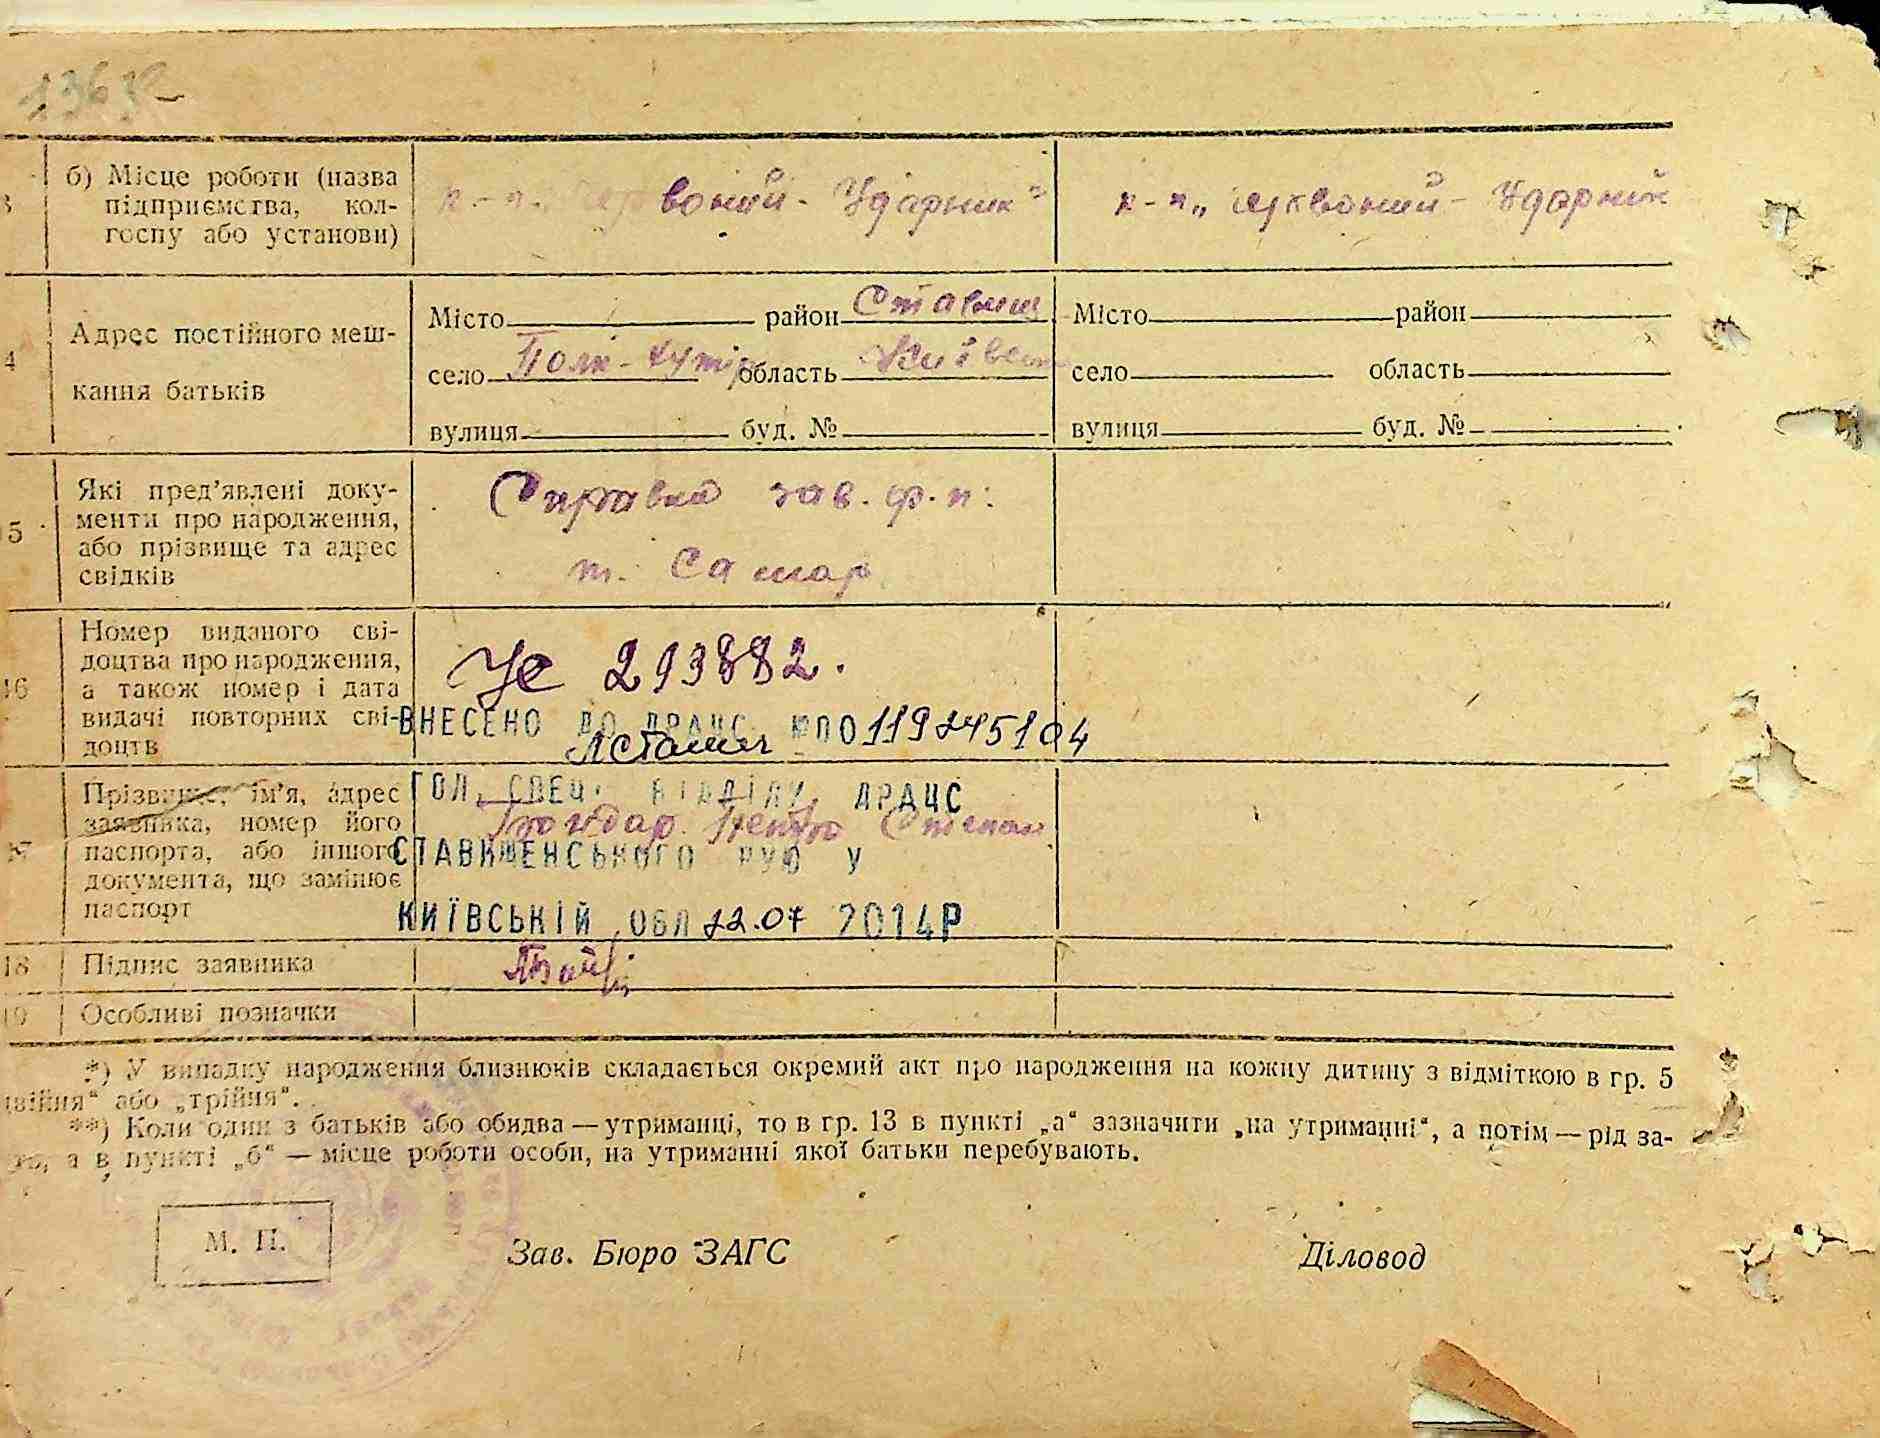 б) Місце роботи (назва
підприємства, кол-
госпу або установи)
к-п „Червоний - Ударник"
к-п „Червоний - Ударник
4
Адрес постійного меш-
кання батьків
Місто район Ставищ
село Полк-Хутір область Київськ
вулиця буд. №
Місто район
село область
вулиця буд. №
5
Які пред'явлені доку-
менти про народження,
або прізвище та адрес
свідків
Справка зав. ф. п.
т. Самар
16
Номер виданого сві-
доцтва про народження,
а також номер і дата
видачі повторних сві-
доцтв
УЄ 293882.
ВНЕСЕНО ДО ДРАЦС
17
Прізвище, ім'я, адрес
заявника, номер його
паспорта, або іншого
документа, що замінює
паспорт
ГОЛ. СПЕЦ. ВІДДІЛУ ДРАЦС
Петро Степан
СТАВИЩЕНСЬКОГО РУЮ У
КИЇВСЬКІЙ ОБЛ 22.07 2014Р
18
Підпис заявника
19
Особливі позначки
*) У випадку народження близнюків складається окремий акт про народження на кожну дитину з відміткою в гр. 5
двійня" або „трійня".
**) Коли один з батьків або обидва — утриманці, то в гр. 13 в пункті „а" зазначити „на утриманні", а потім — рід за-
а в пункті „б" — місце роботи особи, на утриманні якої батьки перебувають.
М. П.
Зав. Бюро ЗАГС
Діловод